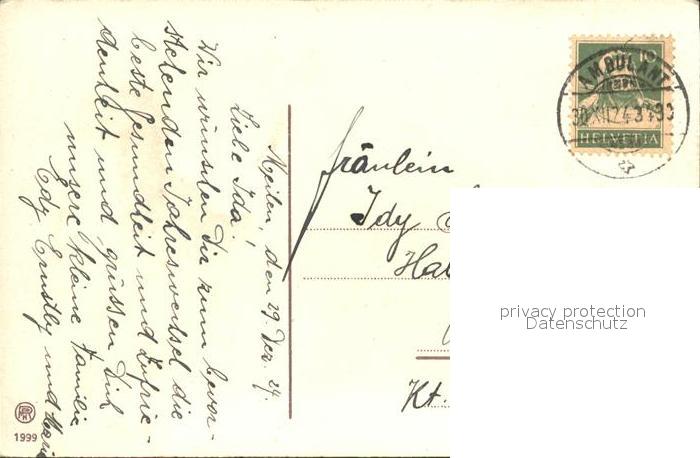 Meilen, den 29. Dez. 24.
Liebe Ida!
Wir wünschen Dir zum bevor-
stehenden Jahreswechsel die
beste Gesundheit und Zufrie-
denheit und grüssen Dich
unsere kleine Familie
Edg. Ernstly und
Fräulein
Idy
Kt.
10
AMBULANT
30.XII.24
HELVETIA
privacy protection
Datenschutz
1999